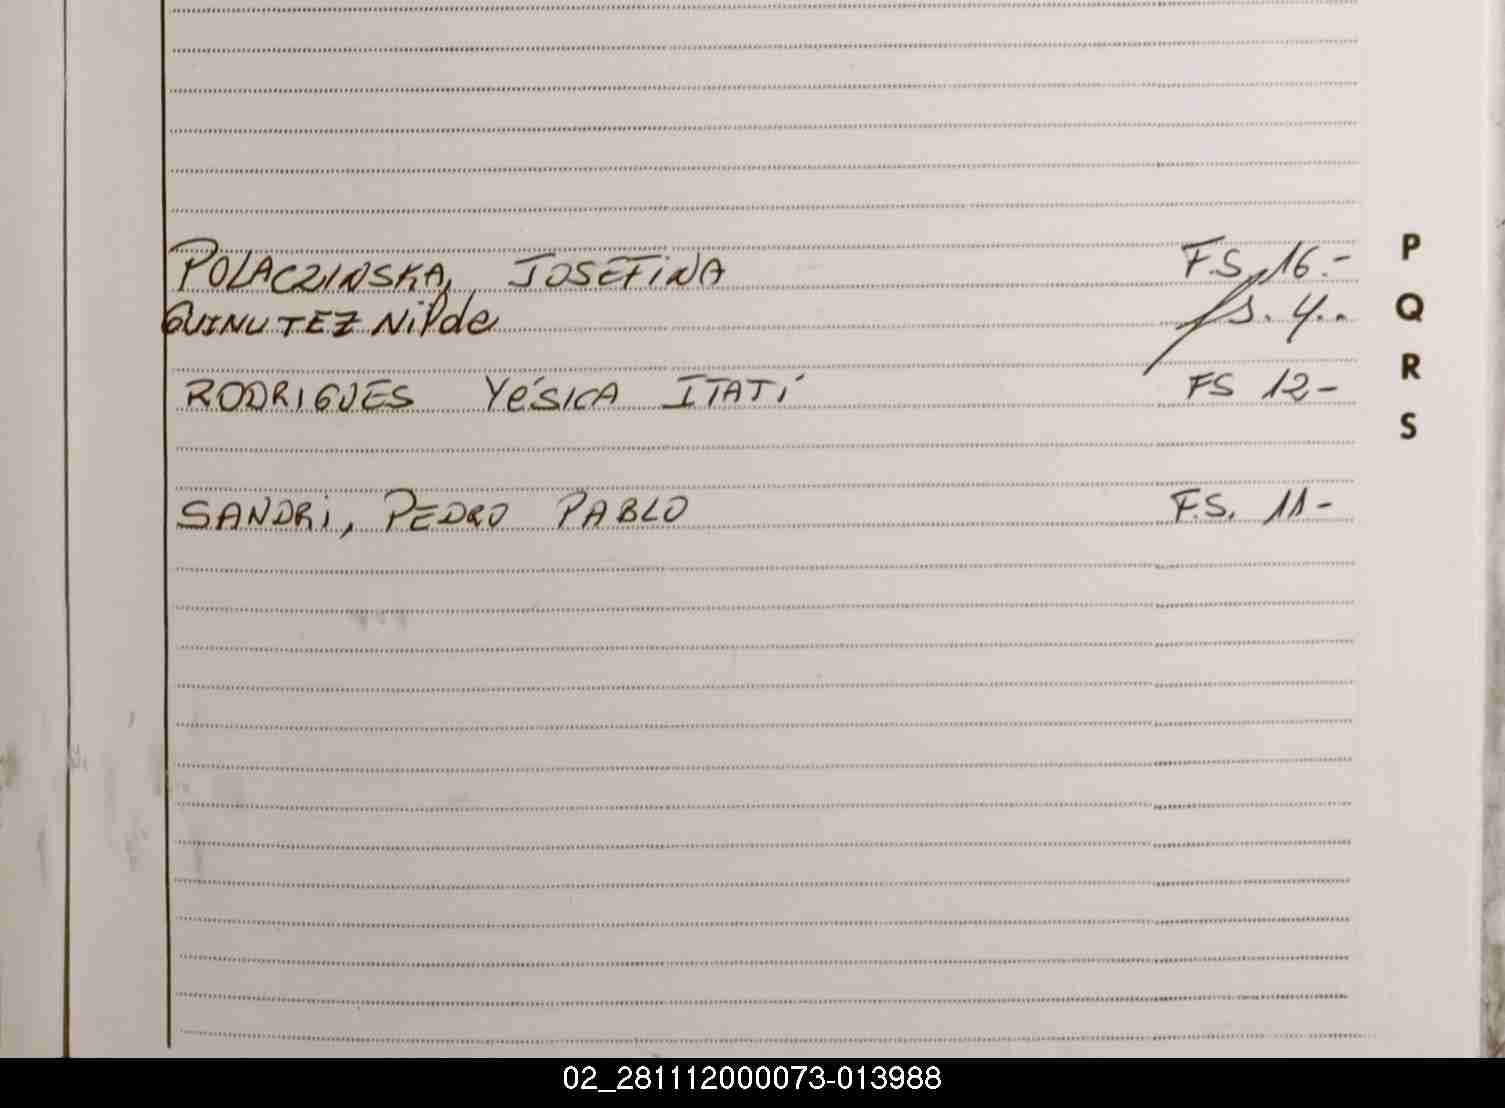 POLACZINSKA, JOSEFINA F.S. 16.- P
QUINUTEZ Nilda fs. 4.. Q
RODRIGUES YéSICA ITATÍ FS 12- R
S
SANDRi, PEDRO PABLO F.S. 11-
02_281112000073-013988